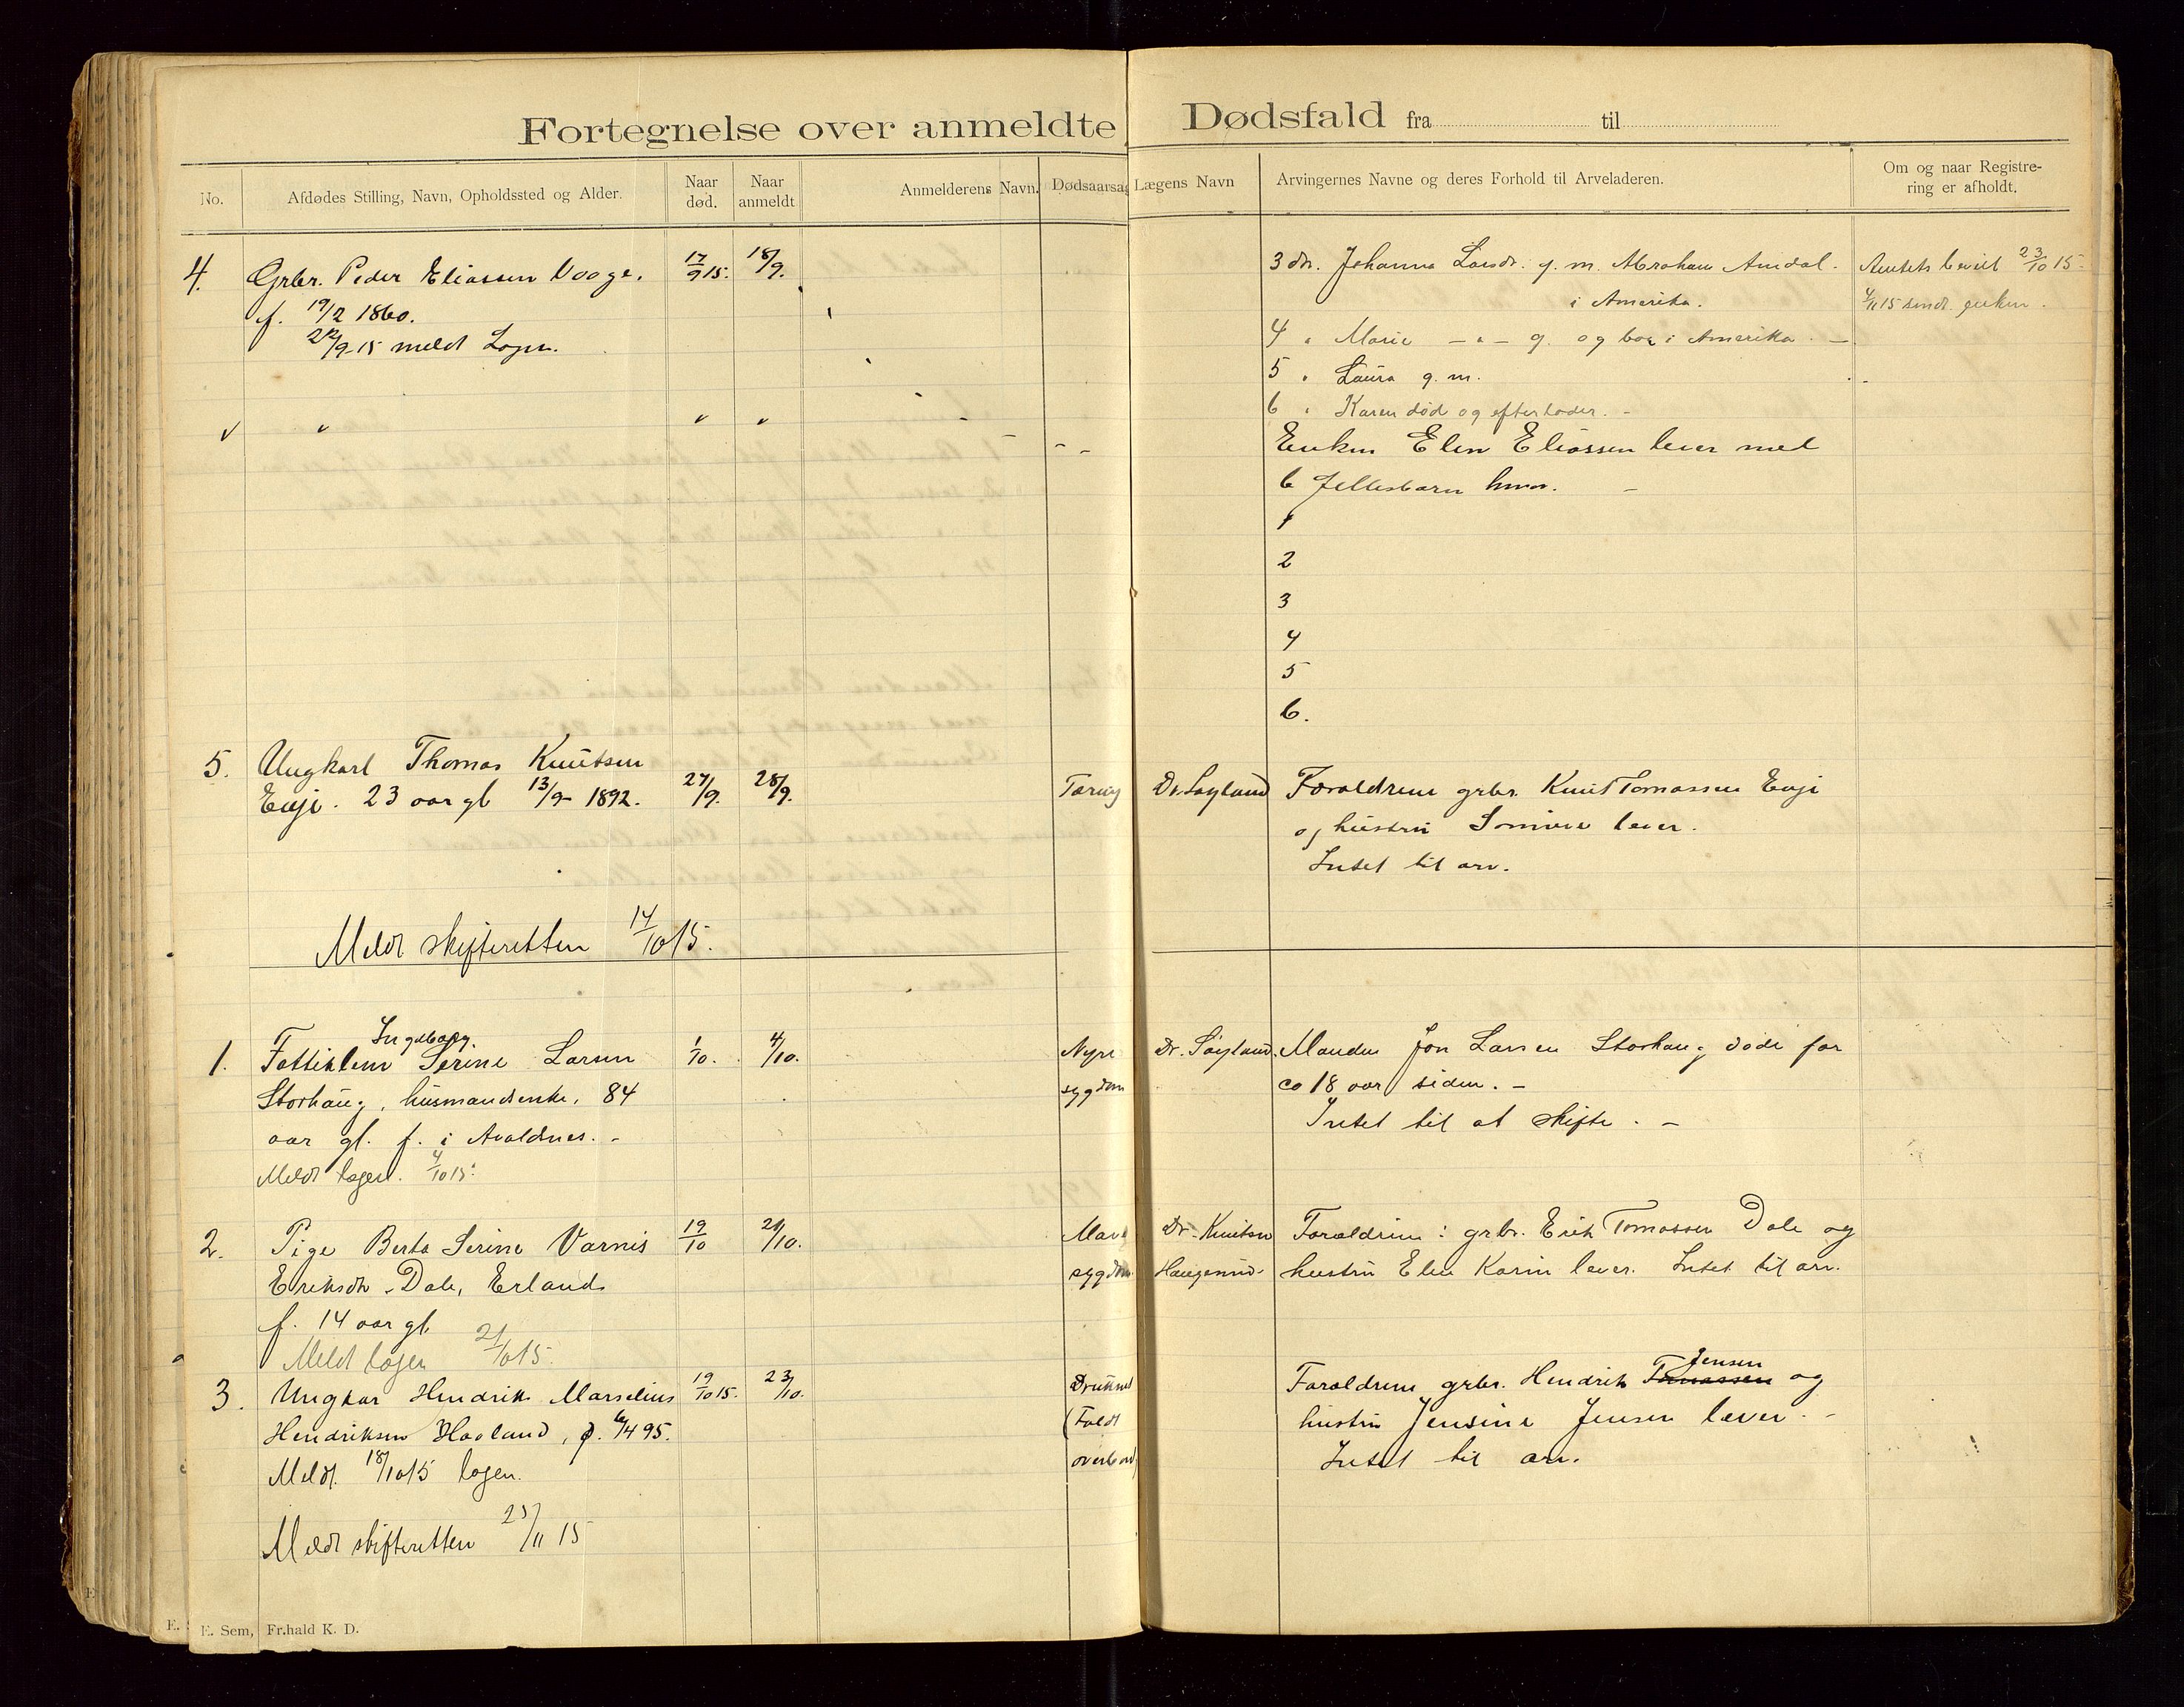 Fortegnelse over anmeldte Dødsfald fra til
No.
Afdødes Stilling, Navn, Opholdssted og Alder.
Naar død.
Naar anmeldt
Anmelderens Navn.
Dødsaarsag
Lægens Navn
Arvingernes Navne og deres Forhold til Arveladeren.
Om og naar Registre-
ring er afholdt.
4. Grbr. Peder Eliassen Vaage. 17/9 15. 18/9.
f. 19/2 1860.
22/9 15 meldt Lagen.
3 dtr. Johanna Larsdr. g. m. Abraham Amdal.
i Amerika.
4 " Marie — " — g. og bor i Amerika. —
5 " Laura g. m.
6 " Karen død og efterlader. -
Enken Elen Eliassen lever med
6 fellesbarn
1
2
3
4
5
6.
23/10 15.
4/11 15 sendt enken.
5. Ungkarl Thomas Knutsen
Eige. 23 aar gl 13/9 1892. 27/9. 28/9.
Tæring Dr. Søyland Foraldrene grbr. Knut Tomassen Eige
og hustru lever.
Intet til arv.
Meldt skifteretten 14/10 15.
1. Ingeborg
Fattiklem Serine Larsen 1/10. 4/10.
Storhaug, husmandsenke, 84
aar gl. f. i Avaldsnes. -
Meldt lagen. 4/10 15.
Nyre
sygdom
Dr. Søyland. Manden Jon Larsen Storhaug døde for
ca 18 aar siden. -
Intet til at skifte. -
2. Pige Berta Serine Varnis 19/10 21/10.
Eriksdtr. Dale, Erlands
f. 14 aar gl.
Meldt lagen 21/10 15.
Mave
sygdom
Dr. Knutsen
Haugesund.
Foraldrene: grbr. Erik Tomassen Dale og
hustru Elen Karine lever. Intet til arv.
3. Ungkar Hendrik Marselius 19/10 15. 23/10.
Hendriksen Haaland, f. 6/4 95.
Meldt 18/10 15 lagen.
Druknet
(Faldt
overbord)
Foraldrene grbr. Hendrik Tomassen Jensen og
hustru Jensine Jensen lever. -
Intet til arv.
Meldt skifteretten 25/11 15
E. Sem, Fr.hald K. D.